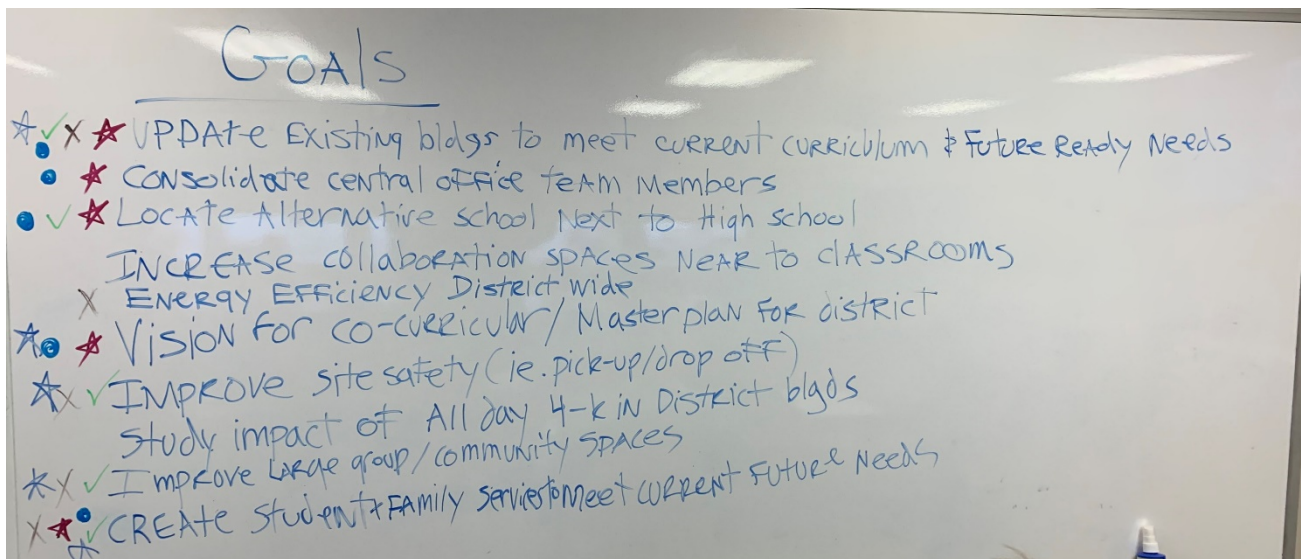 GOAlS
UPDAte Existing bldgs to meet current curriculum & Future Ready Needs
Consolidate central office team Members
Locate Alternative school Next to High school
INCREASE collaboration spaces Near to classrooms
Energy Efficiency District wide
Vision for co-curricular/Master plan for district
Improve site safety (ie. pick-up/drop off)
Study impact of All day 4-k in District blgds
Improve Large group/community spaces
Create Student + Family Services to Meet current Future Needs